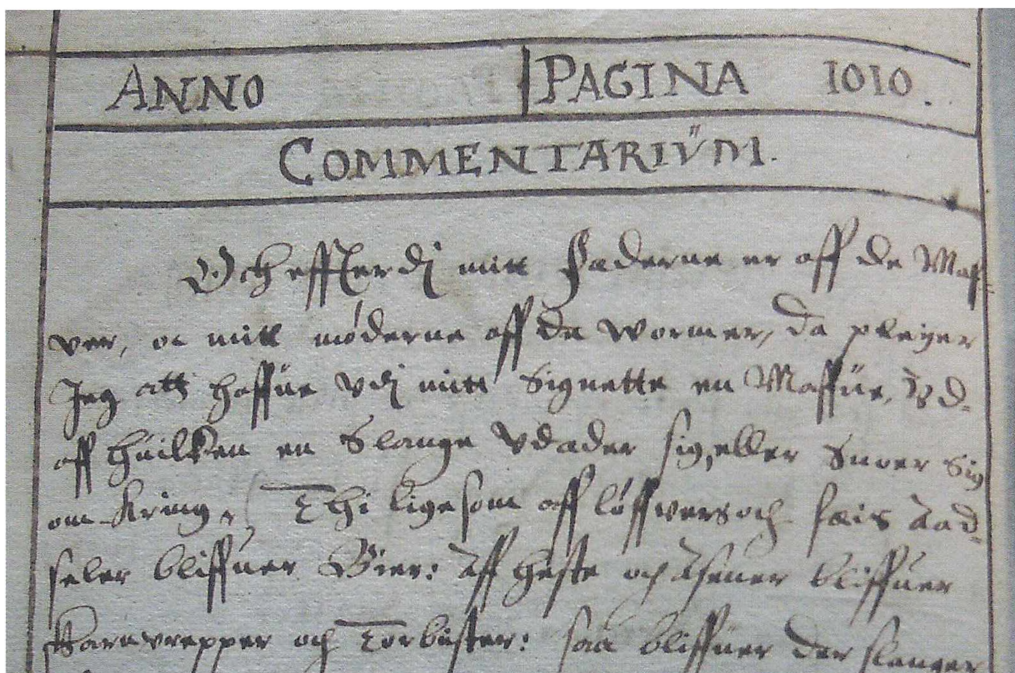 ANNO PAGINA 1010.
COMMENTARIVM.
Och effterdj mitt Fæderne er aff de Maff-
ver, oc mitt møderne aff de Wormer, da pleyer
Jeg att haffue vdj mitt Signette en Maffue, Vd-
aff huilken en Slange vdader sig, eller Snoer Sig
om Kring, Thi lige som aff løffvers och Aad-
seler bliffuer Bier: Aff heste och Asener bliffuer
och Torbister: saa bliffuer der slanger